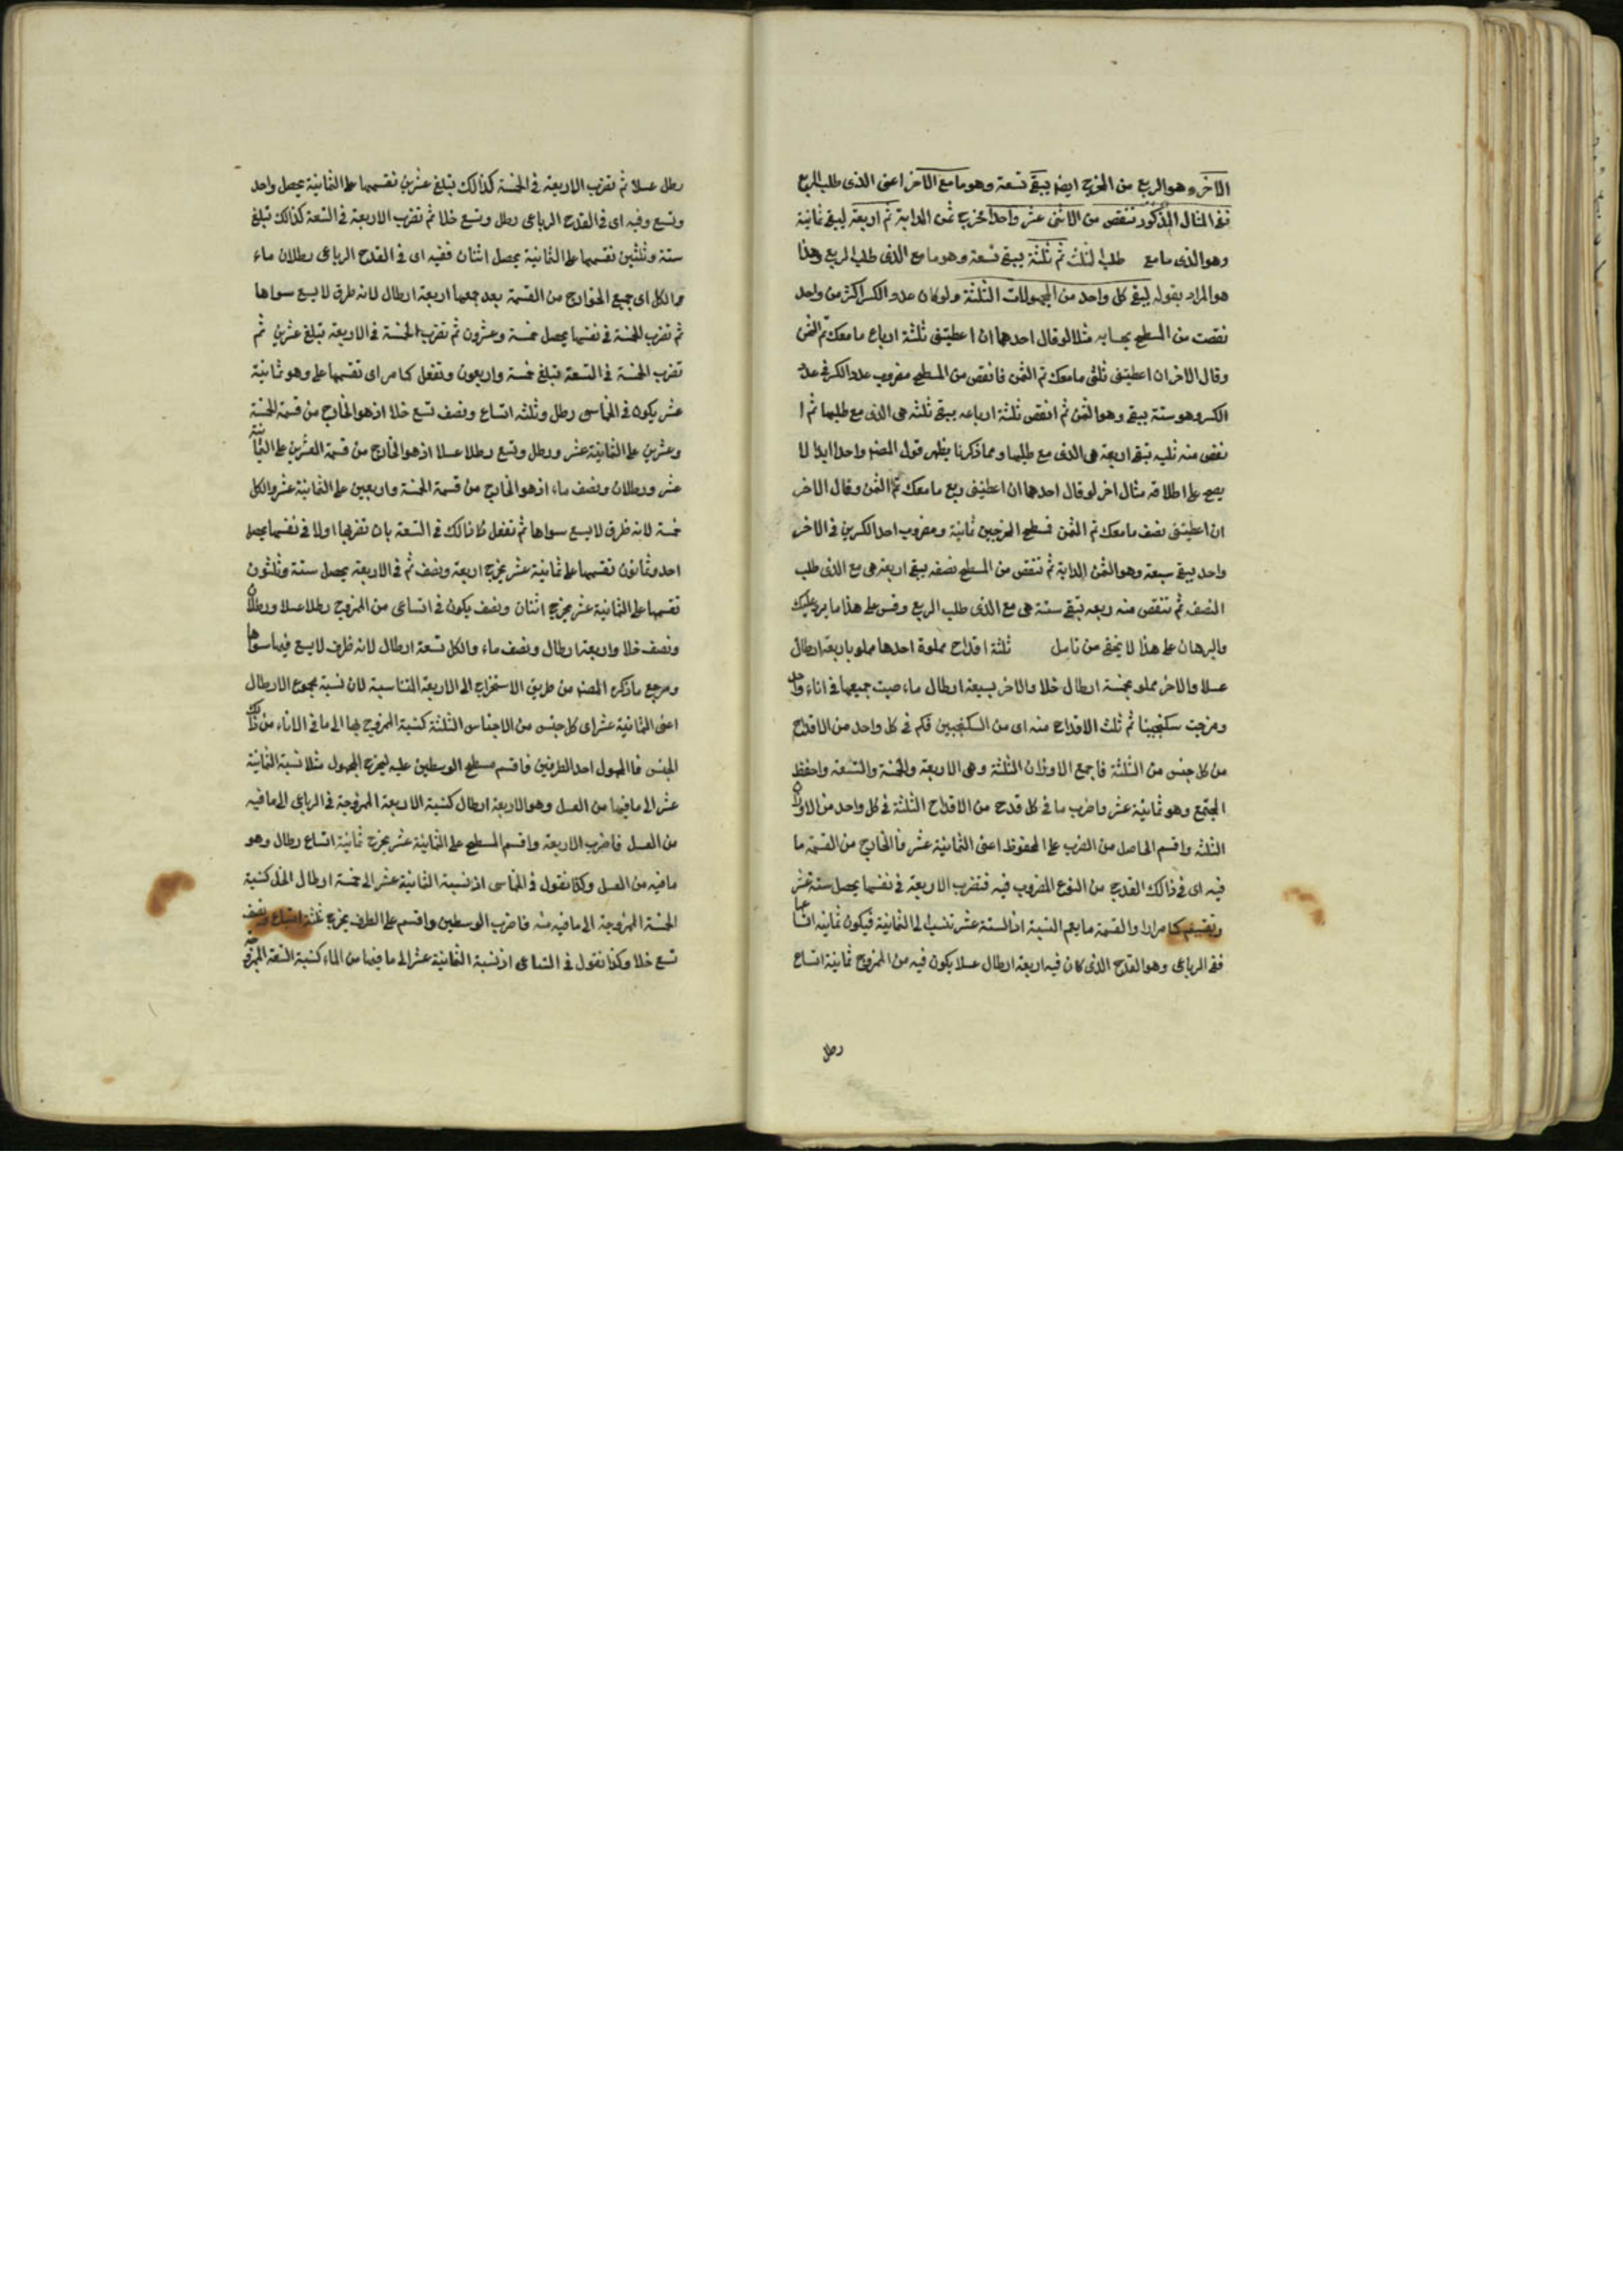 الاخر وهو الربع من المخرج ايضا يبقى تسعة وهو ما مع الآخر اعنى الذى طلب الربع
ففى المثال المذكور تنقص من الاثنى عشر واحدا مخرج ثمن الدابة ثم اربعة ليبقى ثمانية
وهو الذى ما مع طلب الثلث ثم ثلثة يبقى تسعة وهو ما مع الذى طلب الربع وهذا
هو المراد بقوله ليبقى كل واحد من المجهولات الثلثة ولو كان عدد الكسر اكثر من واحد
نقصت من المسطح بحسابه مثلا لو قال احدهما ان اعطيتنى ثلثة ارباع ما معك تم الثمن
وقال الاخر ان اعطيتنى ثلثى ما معك تم الثمن فانقص من المسطح مضروب عدد الكسر فى عدد
الكسر وهو ستة يبقى وهو الثمن ثم انقص ثلثة ارباعه يبقى ثلثه هى الذى مع طلبها ثم ا
نقص منه ثلثيه تبقى اربعة هى الذى مع طلبها ومما ذكرنا يظهر قول المصنف واحدا ابدا لا
يصح على اطلاقه مثال اخر لو قال احدهما ان اعطيتنى ربع ما معك تم الثمن وقال الاخر
ان اعطيتنى نصف ما معك تم الثمن فسطح المخرجين ثمانية ومضروب احد الكسرين فى الاخر
واحد يبقى سبعة وهو الثمن الدابة ثم تنقص من المسطح نصفه يبقى اربعة هى مع الذى طلب
النصف ثم تنقص منه ربعه تبقى ستة هى مع الذى طلب الربع وقس على هذا ما يرد عليك
والبرهان على هذا لا يخفى من تامل ثلثة اقداح مملوة احدها مملو باربعة ارطال
عسلا والاخر مملو بخمسة ارطال خلا والاخر بسبعة ارطال ماء صبت جميعها فى اناء واحد
ومزجت سكنجبينا ثم ثلث الاقداح منه اى من السكنجبين فكم فى كل واحد من الاقداح
من كل جنس من الثلثة فاجمع الاوزان الثلثة وهى الاربعة والخمسة والتسعة واحفظ
المجتمع وهو ثمانية عشر واضرب ما فى كل قدح من الاقداح الثلثة فى كل واحد من الاوزان
الثلثة واقسم الحاصل من الضرب على المحفوظ اعنى الثمانية عشر فالخارج من القسمة ما
فيه اى فى ذالك القدح من النوع المضروب فيه فتضرب الاربعة فى نفسها يحصل ستة عشر
وتقسيم كما مرارا والقسمة ما يعم النسبة اذ الستة عشر تنسب الى الثمانية فيكون ثمانية اتساعها
ففى الرباعى وهو القدح الذى كان فيه اربعة ارطال عسلا يكون فيه من الممزوج ثمانية اتساع
رطل
رطل عسلا ثم تضرب الاربعة فى الخمسة كذالك تبلغ عشرين نقسمها على الثمانية يحصل واحد
وتسع وفيه اى فى القدح الرباعى رطل وتسع خلا ثم تضرب الاربعة فى التسعة كذالك تبلغ
ستة وثلثين نقسمها على الثمانية يحصل اثنان ففيه اى فى القدح الرباعى رطلان ماء
والكل اى جميع الخوارج من القسمة بعد جمعها اربعة ارطال لانه ظرف لا يسع سواها
ثم تضرب الخمسة فى نفسها يحصل خمسة وعشرون ثم تضرب الخمسة فى الاربعة تبلغ عشرين ثم
تضرب الخمسة فى التسعة فتبلغ خمسة واربعون وتفعل كما مر اى تقسمها على وهو ثمانية
عشر يكون فى الخماسى رطل وثلثه اتساع ونصف تسع خلا اذ هو الخارج من قسمة الخمسة
وعشرين على الثمانية عشر ورطل وتسع رطلا عسلا اذ هو الخارج من قسمة العشرين على الثمانية
عشر ورطلان ونصف ماء اذ هو الخارج من قسمة الخمسة واربعين على الثمانية عشر والكل
خمسة لانه ظرف لا يسع سواها ثم تفعل كذالك فى التسعة بان تضربها اولا فى نفسها يحصل
احد وثمانون نقسمها على ثمانية عشر يخرج اربعة ونصف ثم فى الاربعة يحصل ستة وثلثون
نقسمها على الثمانية عشر يخرج اثنان ونصف يكون فى اتساعى من الممزوج رطلا عسلا ورطلان
ونصف خلا واربعة ارطال ونصف ماء والكل تسعة ارطال لانه ظرف لا يسع فيما سواها
ومرجع ما ذكره المصنف من طريق الاستخراج الى الاربعة المتناسبة لان نسبة مجموع الارطال
اعنى الثمانية عشر اى كل جنس من الاجناس الثلثة كنسبة الممزوج بها الى ما فى الاناء من ذالك
الجنس فالمجهول احد الطرفين فاقسم مسطح الوسطين عليه ليخرج المجهول مثلا نسبة الثمانية
عشر الى ما فيها من العسل وهو الاربعة ارطال كنسبة الاربعة الممزوجة فى الرباعى الى ما فيه
من العسل فاضرب الاربعة واقسم المسطح على الثمانية عشر يخرج ثمانية اتساع رطال وهو
ما فيه من العسل وكذا نقول فى الخماسى اذ نسبة الثمانية عشر الى خمسة ارطال الخل كنسبة
الخمسة الممزوجة الى ما فيه منه فاضرب الوسطين واقسم على الطرف يخرج ثلثة اتساع ونصف
تسع خلا وكذا نقول فى التساعى اذ نسبة الثمانية عشر الى ما فيها من الماء كنسبة التسعة الممزوجة